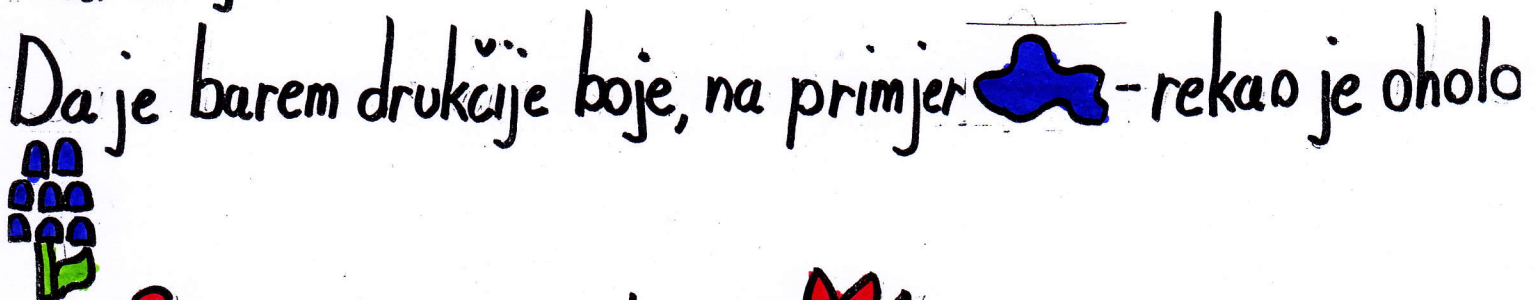 Da je barem drukčije boje, na primjer - rekao je oholo